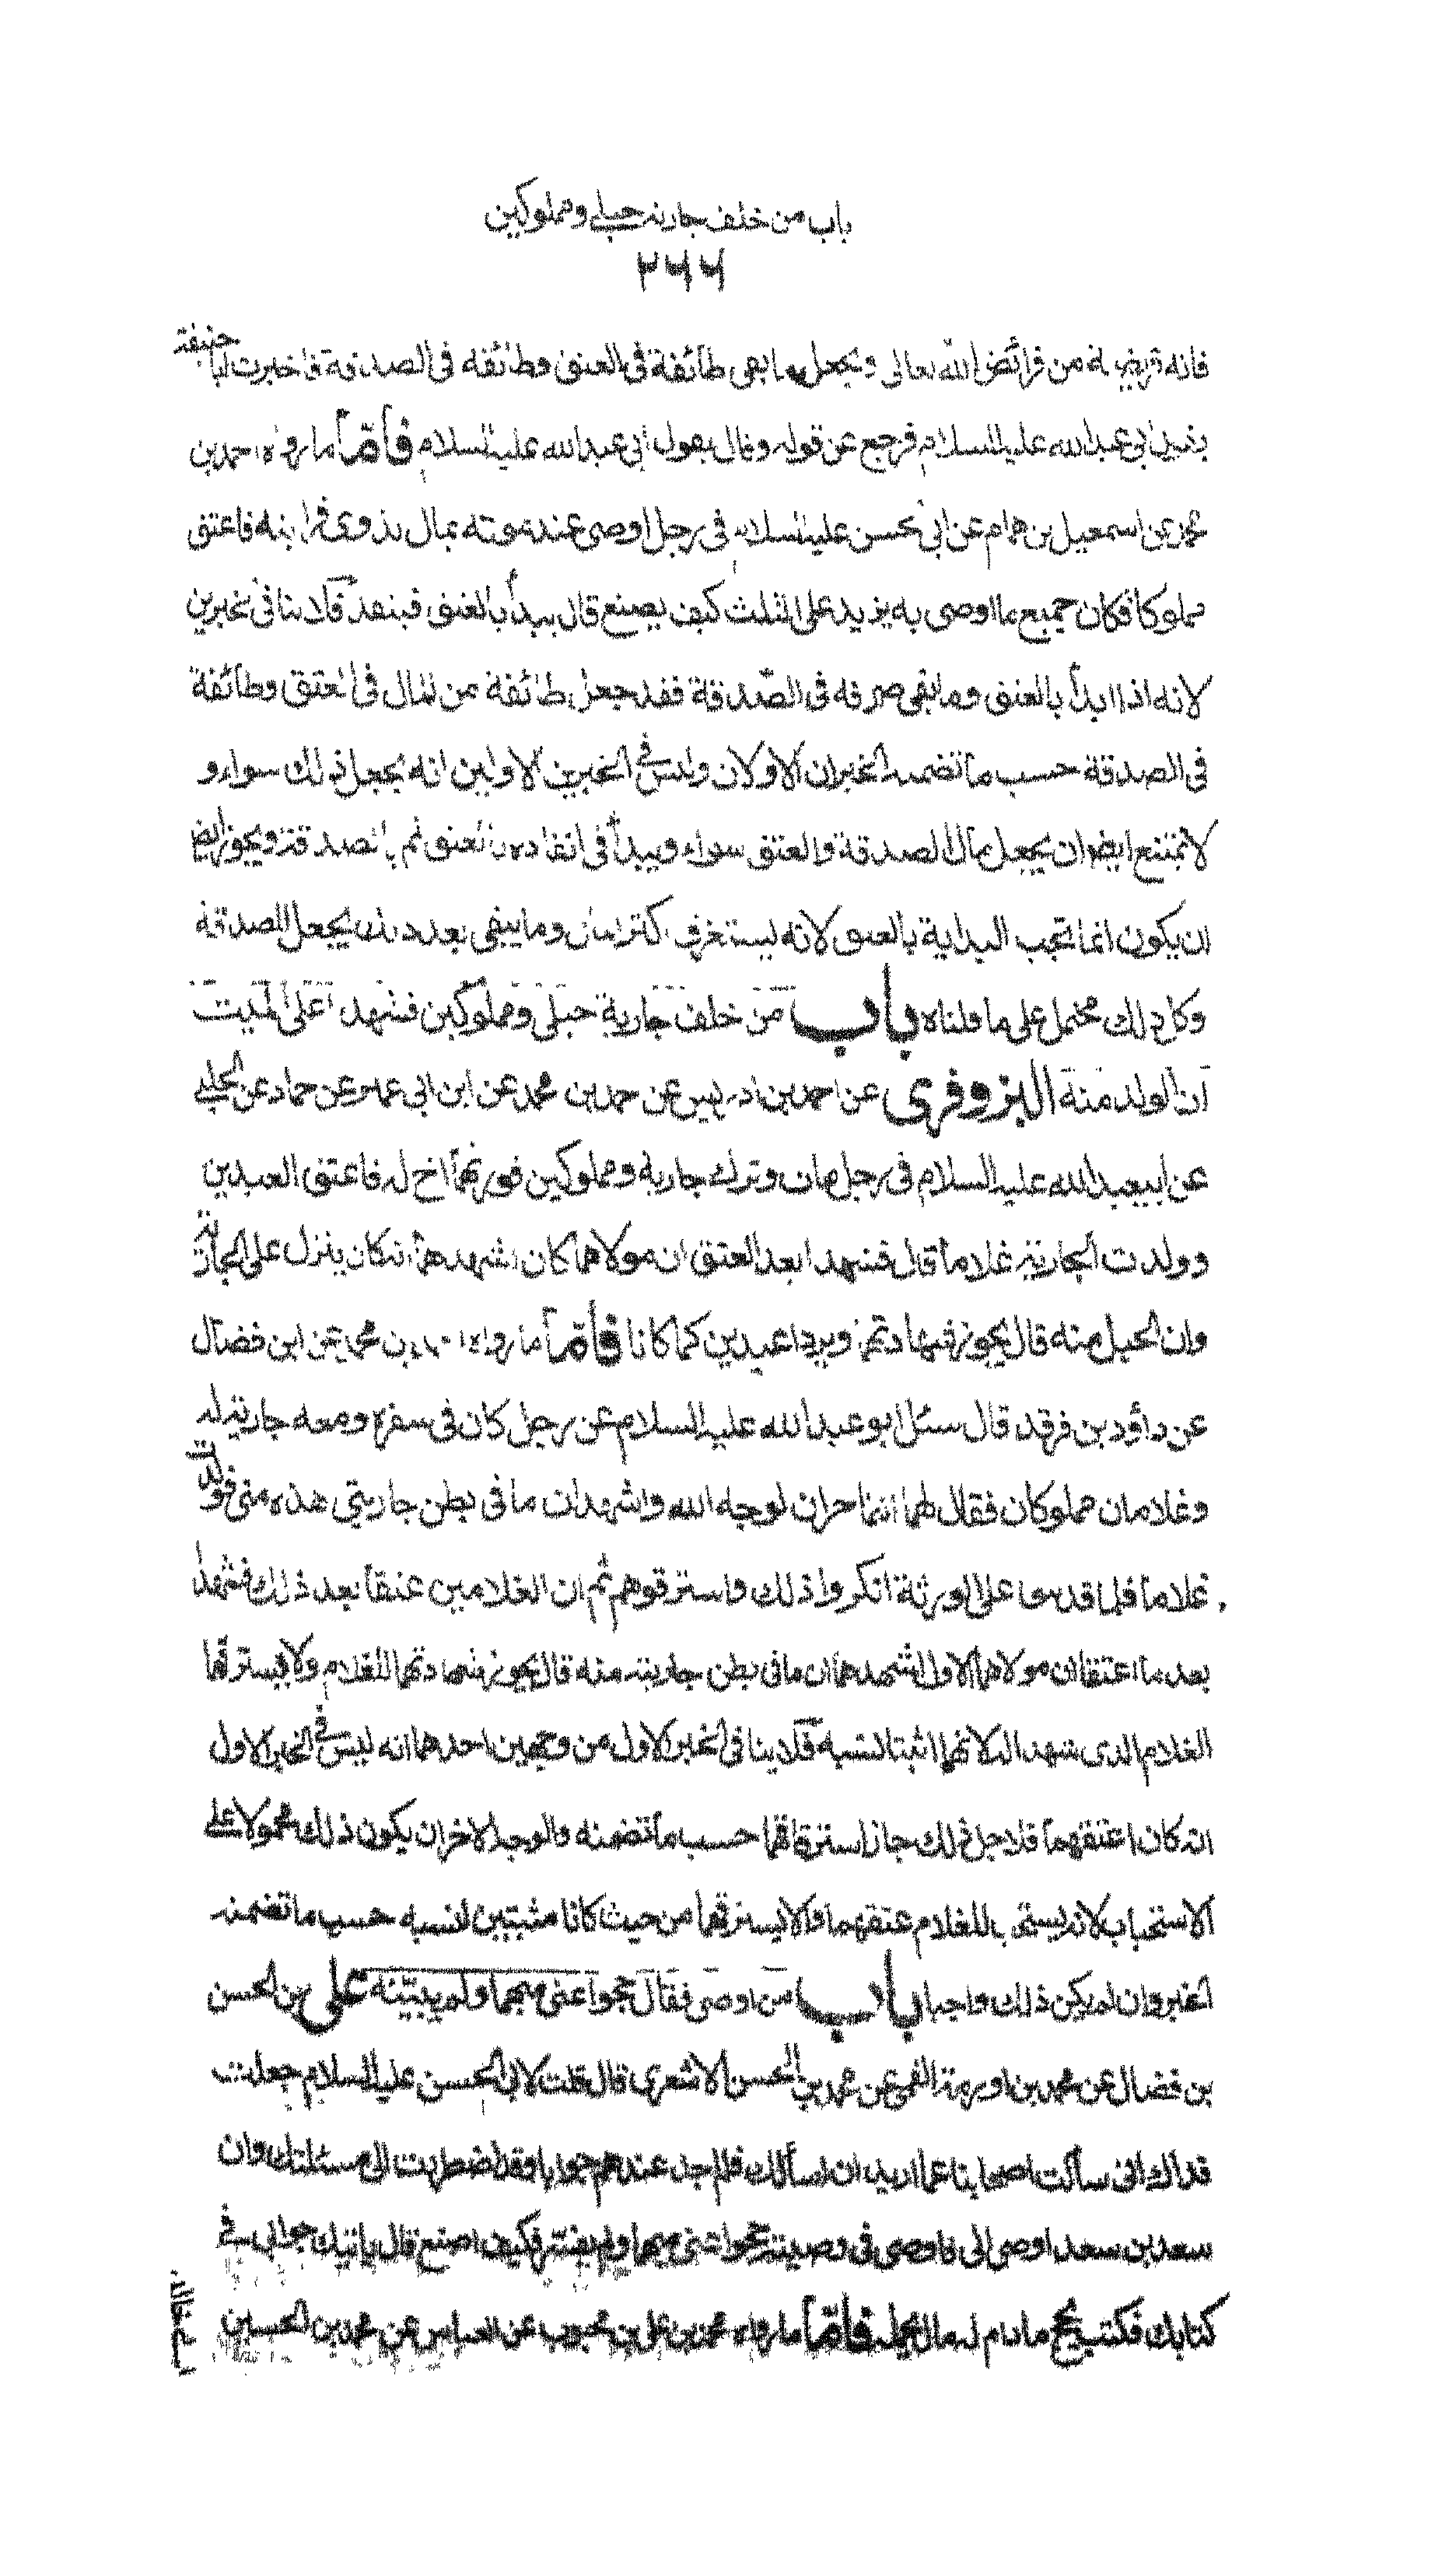 باب من خلف جارية حبلى ومملوكين
٢٦٦
فانه فريضة من فرائض الله تعالى ويجعل ما بقى طائفة فى العتق وطائفة فى الصدقة فاخبرت ابا حنيفة
بقول ابى عبد الله عليه السلام فرجع عن قوله وقال بقول ابى عبد الله عليه السلام فأمّا ما رواه احمد بن
محمد عن اسمعيل بن همام عن ابى الحسن عليه السلام فى رجل اوصى عند موته بمال لذوى قرابته فاعتق
مملوكا فكان جميع ما اوصى به يزيد على الثلث كيف يصنع قال يبدأ بالعتق فينفذ فلا ينافى الخبرين
لانه اذا ابدأ بالعتق وما بقى صرفه فى الصدقة فقد جعل طائفة من المال فى العتق وطائفة
فى الصدقة حسب ما تضمنه الخبران الاولان وليس فى الخبرين الاولين انه يجعل ذلك سواء و
لا يمتنع ايضا ان يجعل مال الصدقة والعتق سواء ويبدأ فى انفاذه بالعتق ثم بالصدقة ويجوز ايضا
ان يكون انما تجب البداية بالعتق لانه يستغرق اكثر المال وما يبقى بعد ذلك يجعل للصدقة
وكل ذلك محتمل على ما قلناه باب من خلف جارية حبلى ومملوكين فشهدا على الميت
ان الولد منه البزوفرى عن احمد بن ادريس عن احمد بن محمد عن ابن ابى عمير عن حماد عن الحلبى
عن ابيعبد الله عليه السلام فى رجل مات وترك جارية ومملوكين فورثهما اخ له فاعتق العبدين
وولدت الجارية غلاما قال فشهدا بعد العتق ان مولاهما كان اشهدهما انه كان ينزل على الجارية
وان الحبل منه قال يجوز شهادتهما ويردا عبدين كما كانا فأمّا ما رواه احمد بن محمد عن ابن فضال
عن داؤد بن فرقد قال سئل ابو عبد الله عليه السلام عن رجل كان فى سفره ومعه جارية له
وغلامان مملوكان فقال لهما انتما حران لوجه الله واشهدا ان ما فى بطن جاريتى هذه منى فولدت
غلاما فلما قدموا على الورثة انكروا ذلك واسترقوهم ثم ان الغلامين عتقا بعد ذلك فشهدا
بعد ما اعتقا ان مولاهما الاول اشهدهما ان ما فى بطن جاريته منه قال يجوز شهادتهما للغلام ولا يسترقهما
الغلام الذى شهدا له لانهما اثبتا نسبه فلا ينافى الخبر الاول من وجهين احدهما انه ليس فى الخبر الاول
انه كان اعتقهما فلاجل ذلك جاز استرقاقهما حسب ما تضمنه والوجه الاخر ان يكون ذلك محمولا على
الاستحباب لانه يستحب للغلام عتقهما والا يسترقهما من حيث كانا مثبتين لنسبه حسب ما تضمنه
الخبر وان لم يكن ذلك واجبا باب من اوصى فقال حجوا عنى مبهما ولم يبينه على بن الحسن
بن فضال عن محمد بن اورمة القمى عن محمد بن الحسن الاشعرى قال قلت لابى الحسن عليه السلام جعلت
فداك انى سألت اصحابنا عما اريد ان اسألك فلم اجد عندهم جوابا وقد اضطررت الى مسئلتك وان
سعد بن سعد اوصى الى فاوصى فى وصيته حجوا عنى مبهما ولم يفسر فكيف اصنع قال ياتيك جوابى فى
كتابك فكتب يحج ما دام له مال يحمله فأمّا ما رواه محمد بن على بن محبوب عن العباس عن محمد بن الحسين